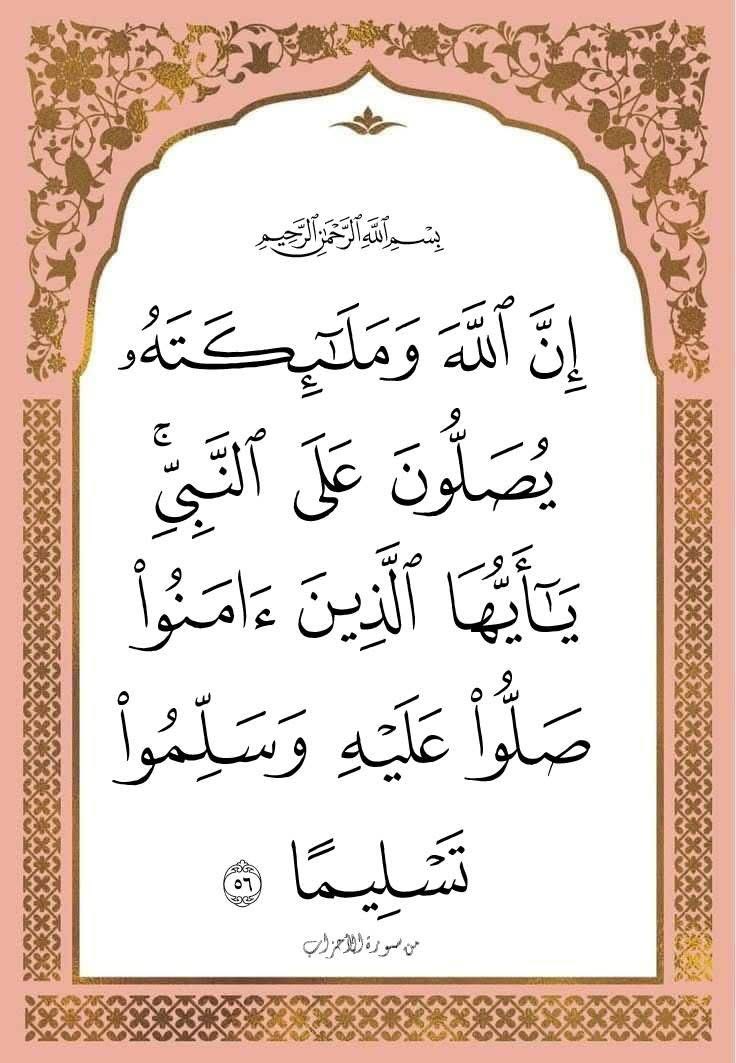 بِسْمِ ٱللَّهِ ٱلرَّحْمَٰنِ ٱلرَّحِيمِ
إِنَّ ٱللَّهَ وَمَلَٰٓئِكَتَهُۥ
يُصَلُّونَ عَلَى ٱلنَّبِيِّۚ
يَٰٓأَيُّهَا ٱلَّذِينَ ءَامَنُوا۟
صَلُّوا۟ عَلَيْهِ وَسَلِّمُوا۟
تَسْلِيمًا ٥٦
من سورة الأحزاب